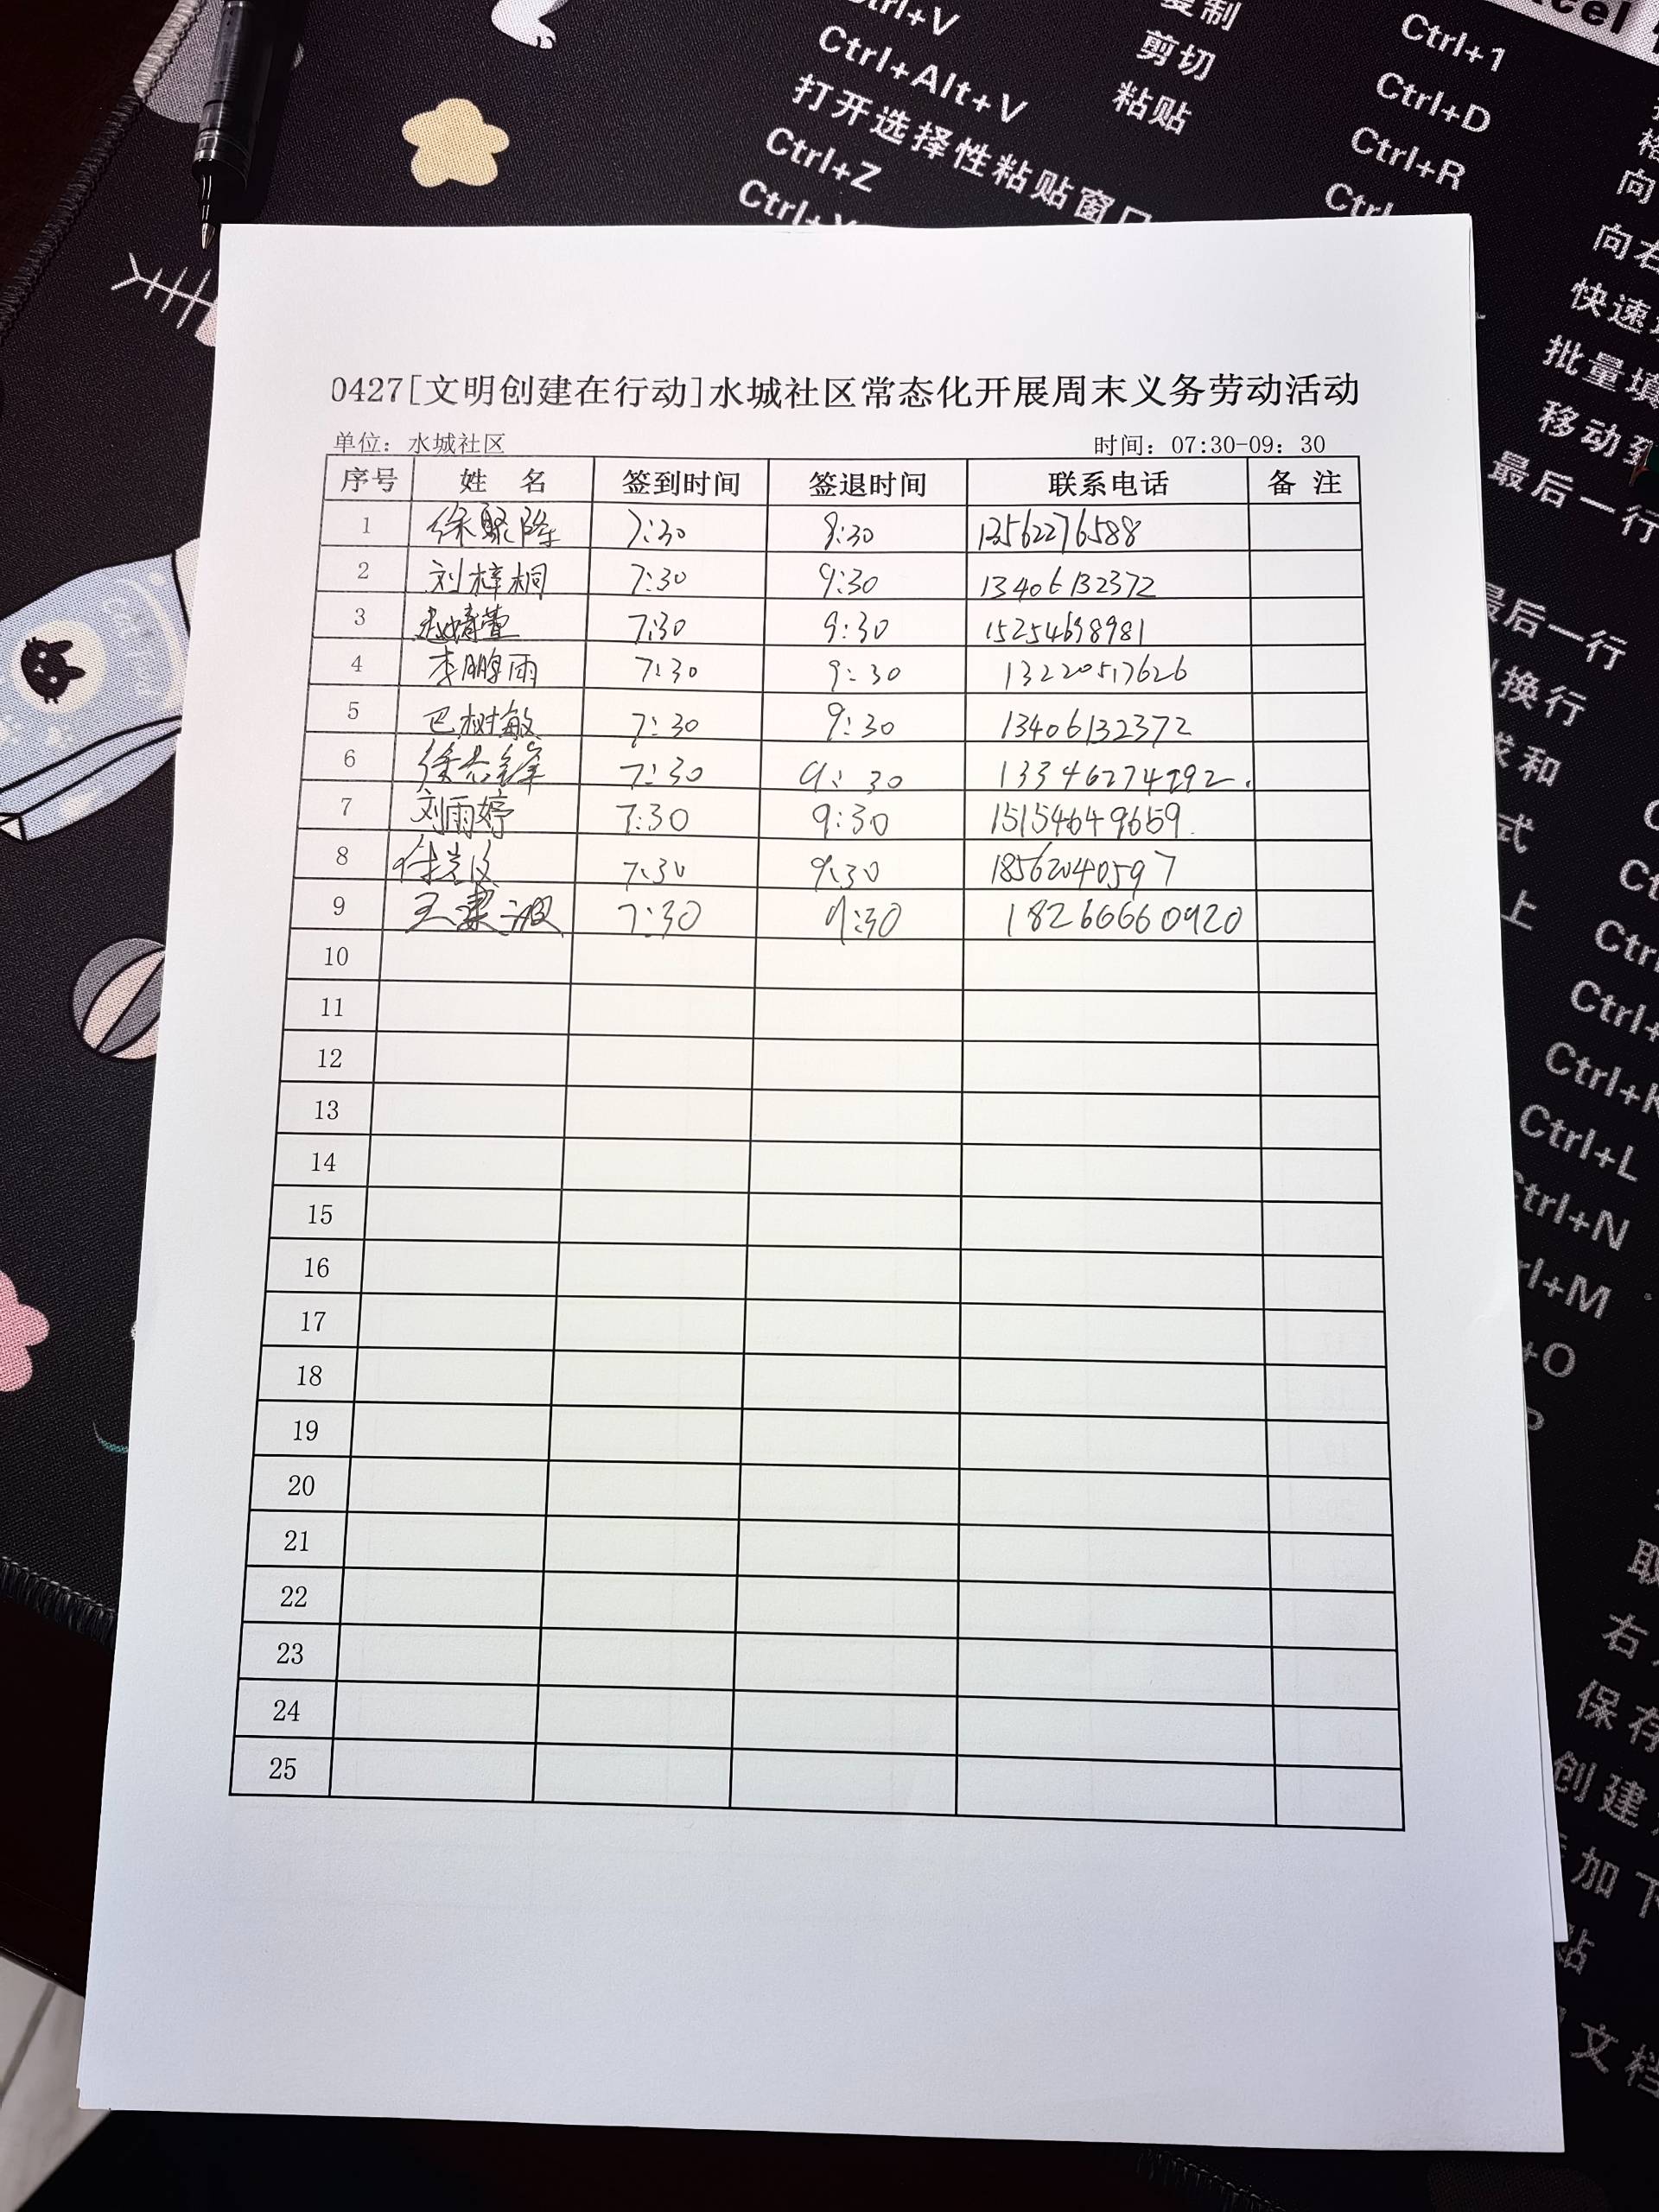 Ctrl+V
复制
Ctrl+1
Ctrl+Alt+V
剪切
Ctrl+D
打开选择性粘贴窗口
粘贴
Ctrl+R
Ctrl+Z
向
向右
快速
批量填
移动到
最后一行
最后一行
换行
求和
式
上
0427[文明创建在行动]水城社区常态化开展周末义务劳动活动
单位：水城社区 时间：07:30-09：30
序号 姓 名 签到时间 签退时间 联系电话 备 注
1 7:30 9:30 13562276588
2 刘梓桐 7:30 9:30 13406132372
3 赵婧萱 7:30 9:30 15254698981
4 李鹏雨 7:30 9:30 13220517626
5 巴树敏 7:30 9:30 13406132372
6 徐志锋 7:30 9:30 13346274292.
7 刘雨婷 7:30 9:30 15154649659.
8 7:30 9:30 18562040597
9 7:30 9:30 18266660920
10
11
12
13
14
15
16
17
18
19
20
21
22
23
24
25
Ctrl+L
Ctrl+N
+O
右
保存
创建
加下
贴
文档